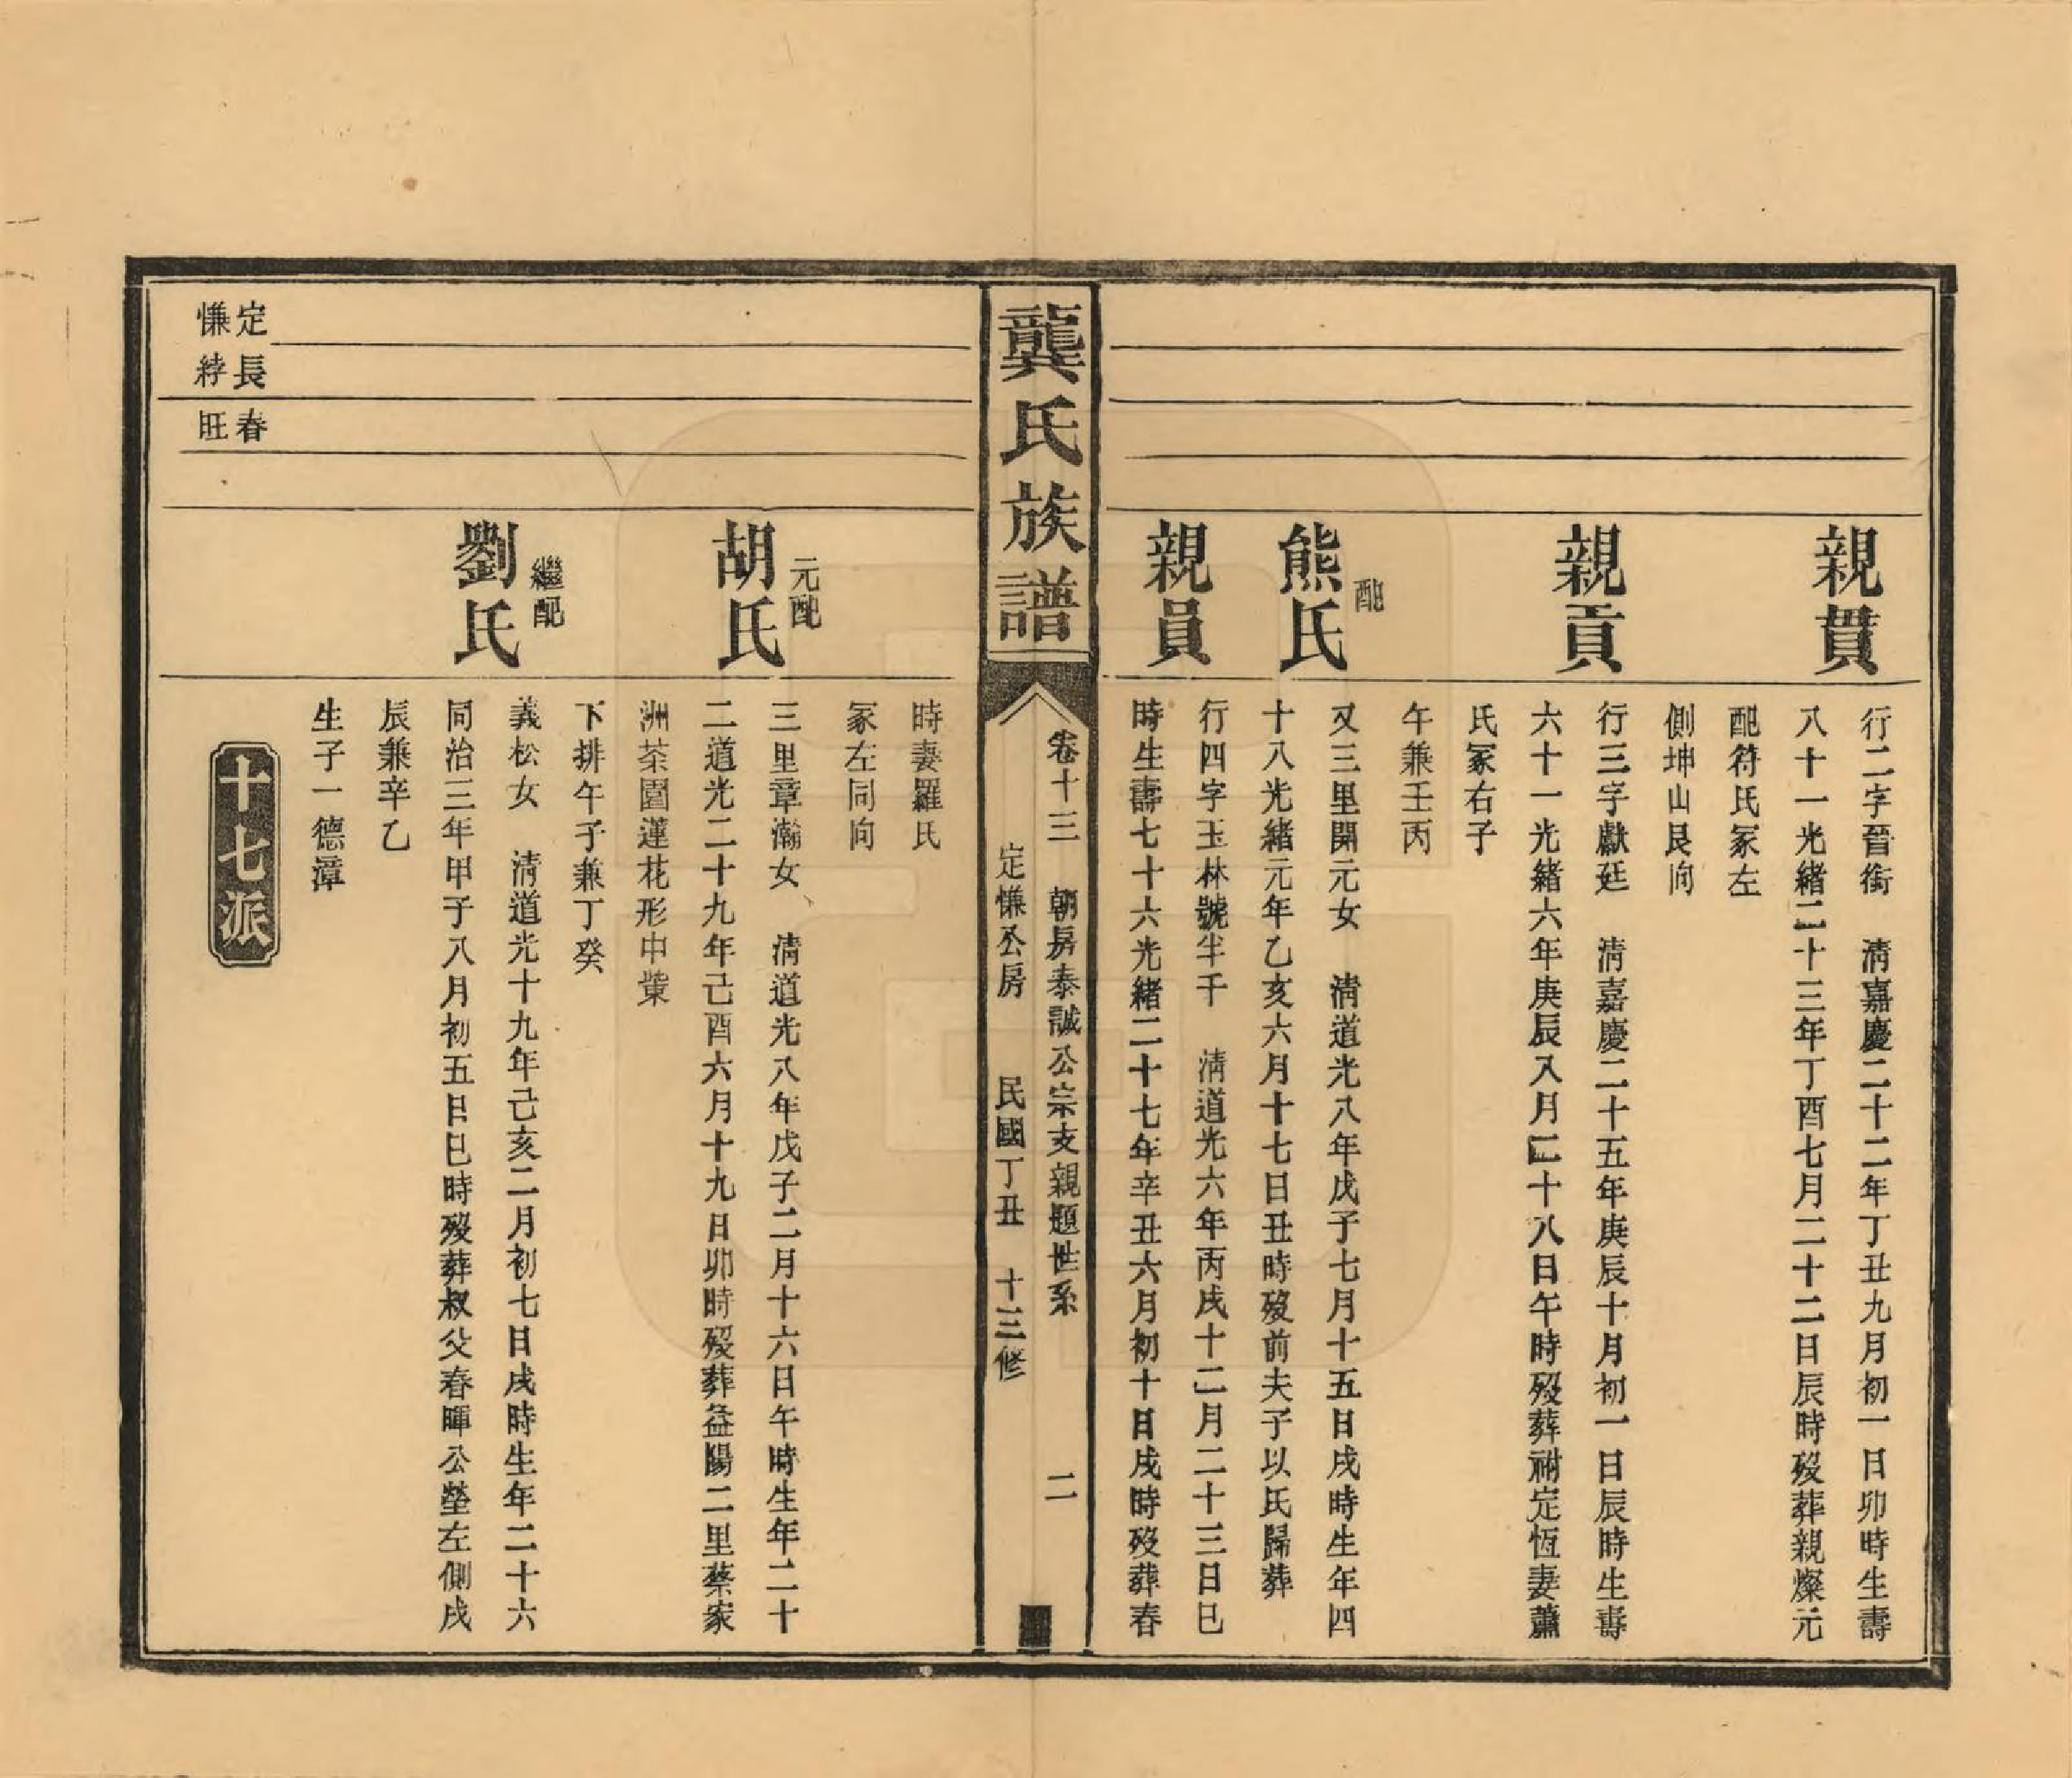 親貫
行二字晉銜　清嘉慶二十二年丁丑九月初一日卯時生壽
八十一光緒二十三年丁酉七月二十二日辰時歿葬親燦元
配符氏冢左
側坤山艮向
親貢
行三字獻廷　清嘉慶二十五年庚辰十月初一日辰時生壽
六十一光緒六年庚辰八月二十八日午時歿葬祔定恆妻蕭
氏冢右子
午兼壬丙
配
熊氏
又三里開元女　清道光八年戊子七月十五日戌時生年四
十八光緒元年乙亥六月十七日丑時歿前夫子以氏歸葬
親員
行四字玉林號半千　清道光六年丙戌十二月二十三日巳
時生壽七十六光緒二十七年辛丑六月初十日戌時歿葬春
龔氏族譜
卷十三　朝房泰誠公宗支親題世系　二
定慊公房　民國丁丑　十三修
時妻羅氏
冢左同向
元配
胡氏
三里章瀚女　清道光八年戊子二月十六日午時生年二十
二道光二十九年己酉六月十九日卯時歿葬益陽二里蔡家
洲茶園蓮花形中葉
下排午子兼丁癸
繼配
劉氏
義松女　清道光十九年己亥二月初七日戌時生年二十六
同治三年甲子八月初五日巳時歿葬叔父春暉公塋左側戌
辰兼辛乙
生子一德漳
十七派
定長春
慊綍旺